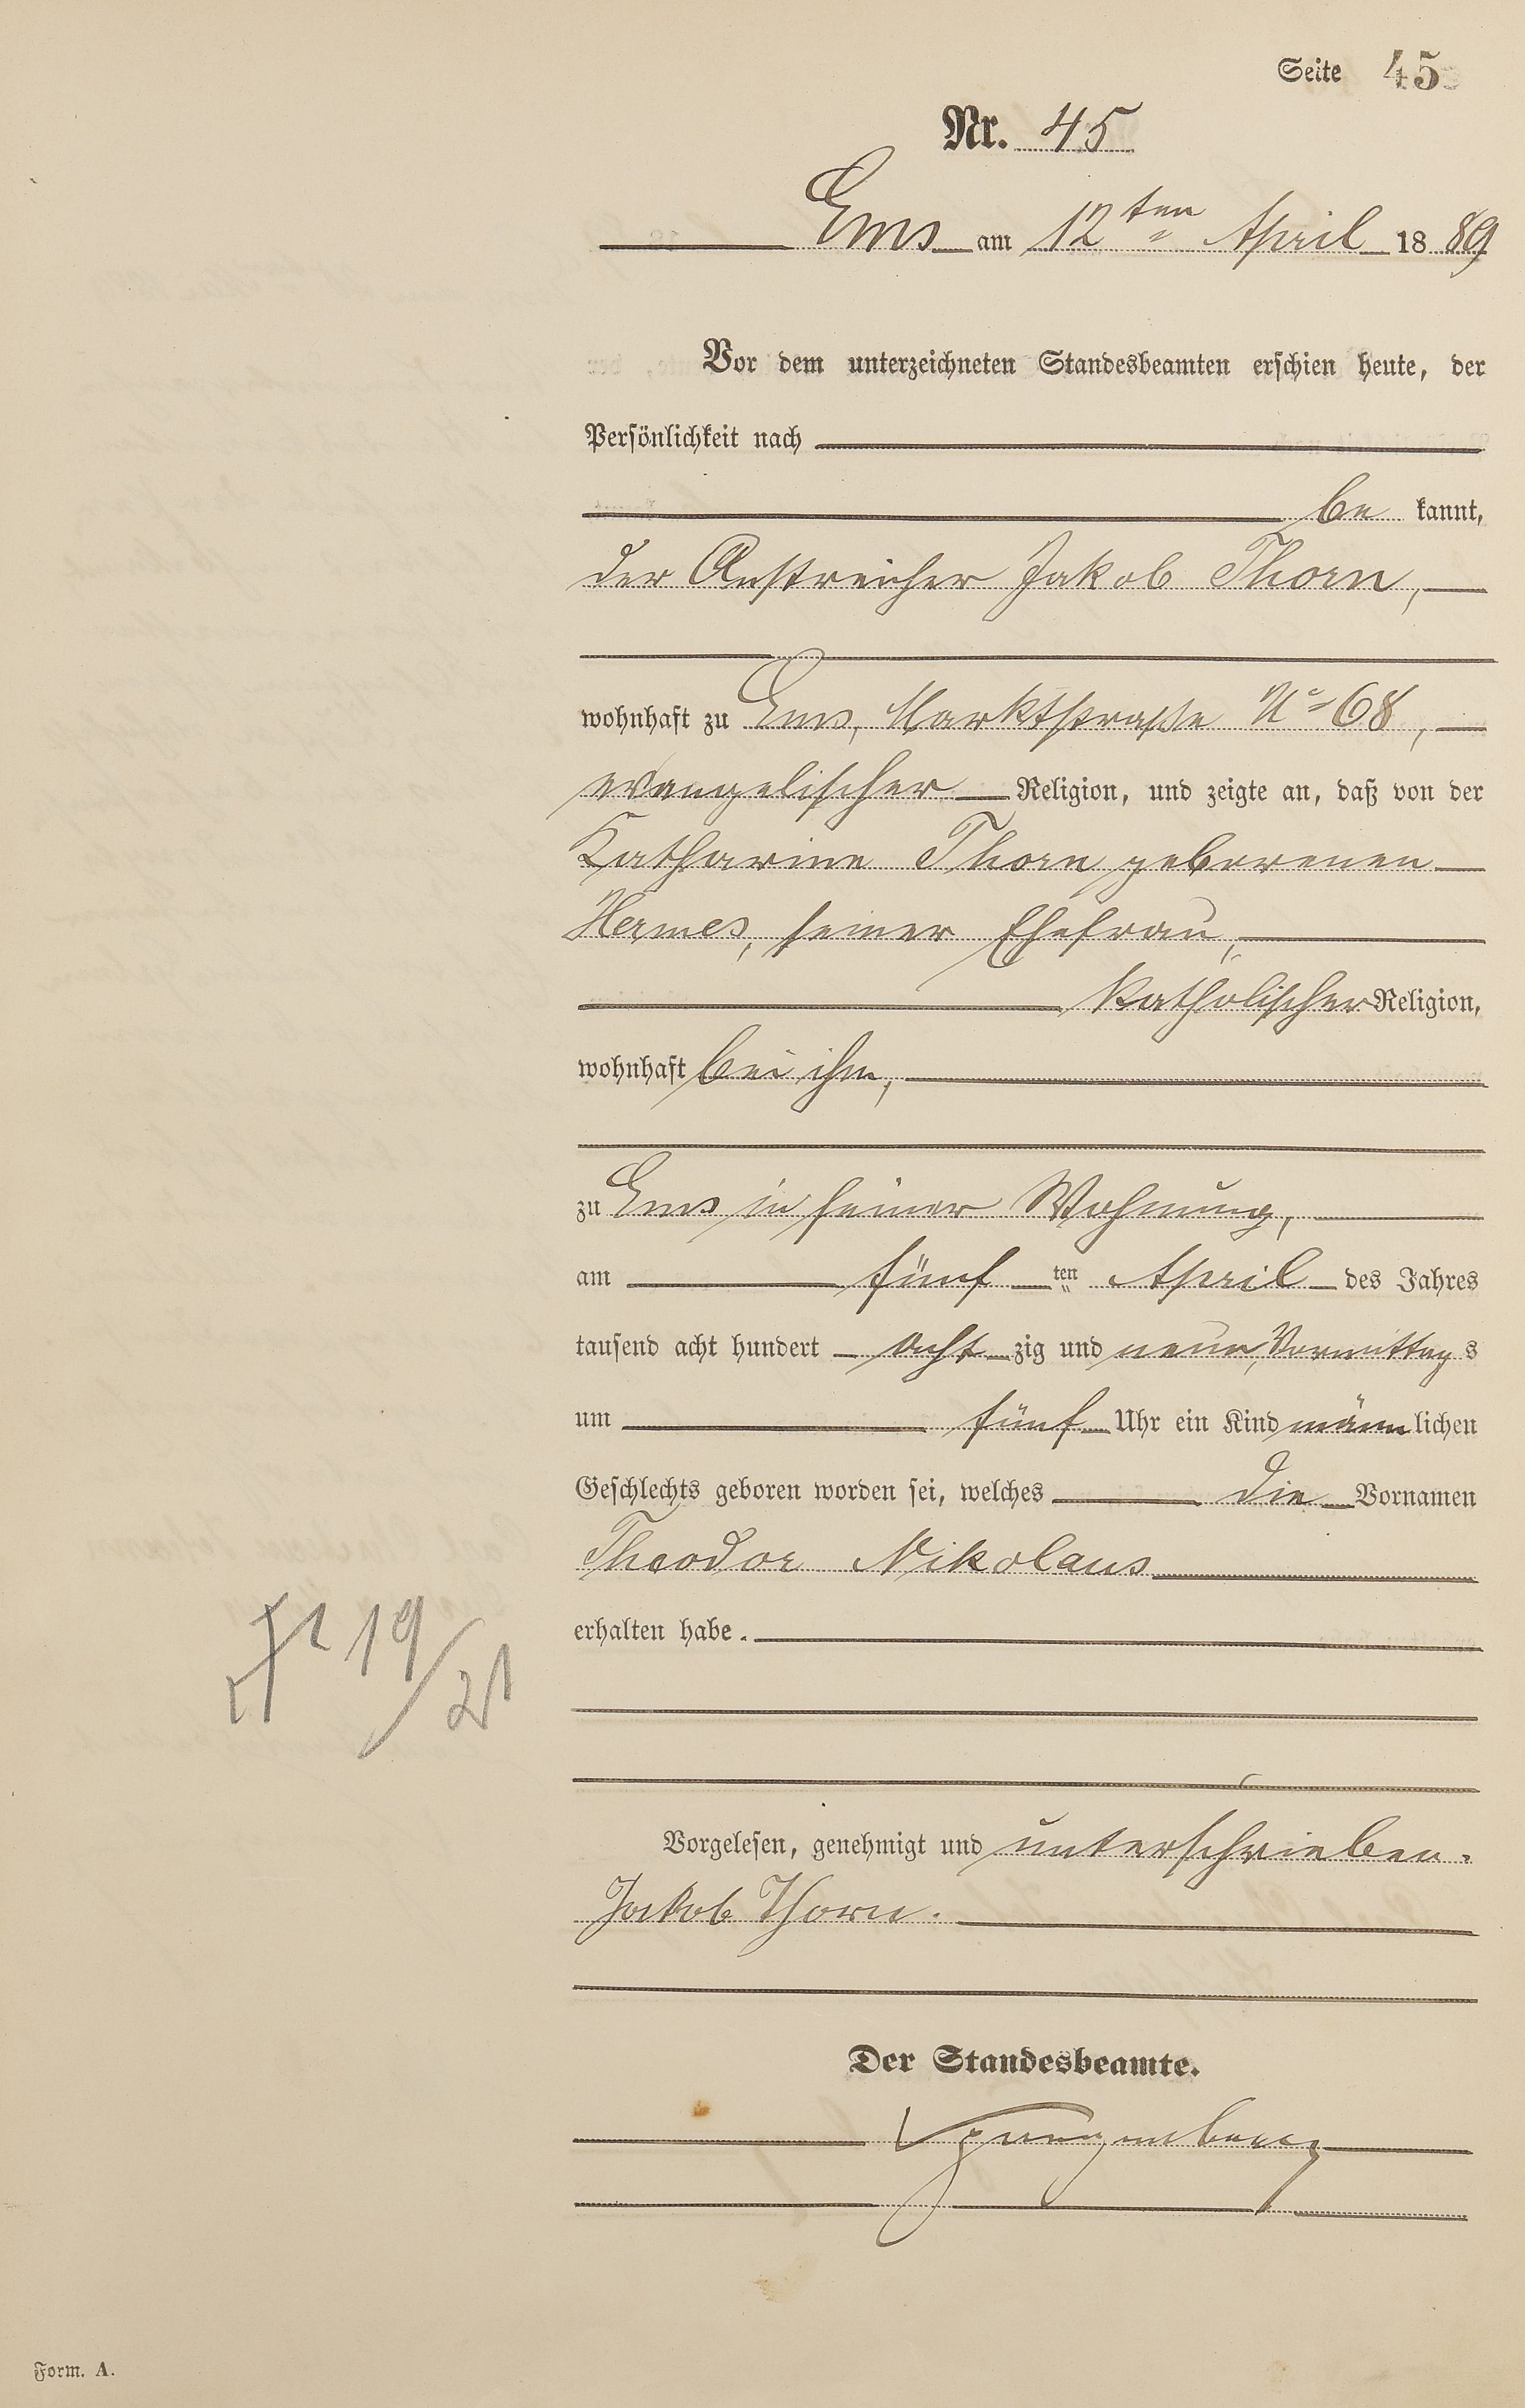 Seite 45
Nr. 45
Ems am 12ten April 1889
Vor dem unterzeichneten Standesbeamten erschien heute, der
Persönlichkeit nach
be kannt,
der Anstreicher Jakob Thorn,
wohnhaft zu Ems, Marktstraße No 68,
evangelischer Religion, und zeigte an, daß von der
Katharine Thorn geborenen
Hermes, seiner Ehefrau,
katholischer Religion,
wohnhaft bei ihm,
zu Ems in seiner Wohnung,
am fünf ten April des Jahres
tausend acht hundert acht zig und neun, Vormittag s
um fünf Uhr ein Kind männlichen
Geschlechts geboren worden sei, welches die Vornamen
Theodor Nikolaus
erhalten habe.
19/21
Vorgelesen, genehmigt und unterschrieben.
Jakob Thorn.
Der Standesbeamte.
Form. A.